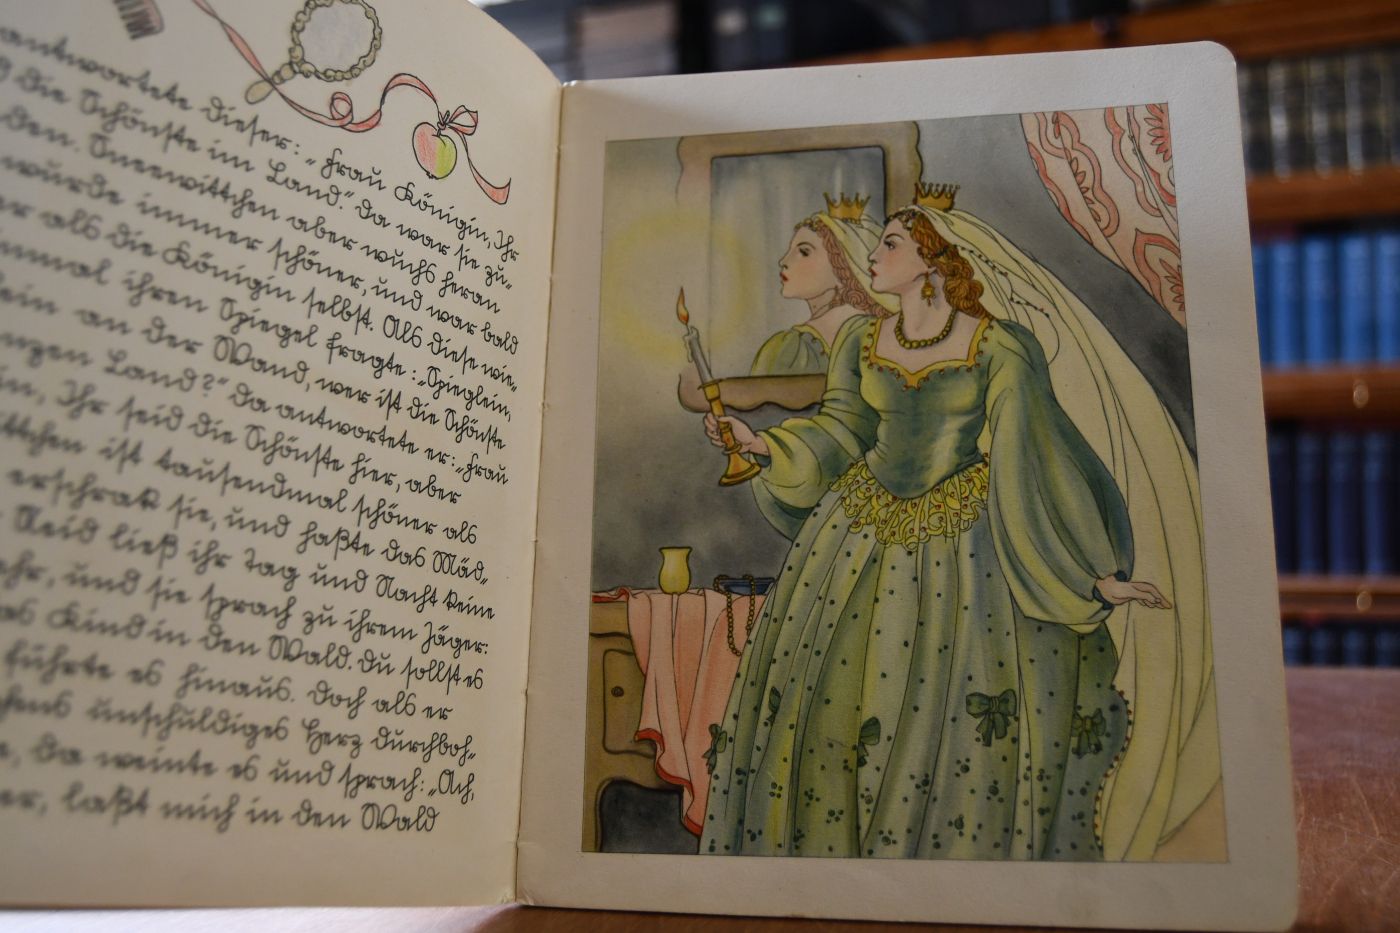 antwortete dieser: „Frau Königin, Ihr
die Schönste im Land.“ Da war sie zu-
den. Sneewittchen aber wuchs heran
wurde immer schöner, und war bald
als die Königin selbst. Als diese wie-
ihren Spiegel fragte: „Spieglein,
an der Wand, wer ist die Schönste
Land?“ Da antwortete er: „Frau
Ihr seid die Schönste hier, aber
ist tausendmal schöner als
erschrak sie, und haßte das Mäd-
Neid ließ ihr Tag und Nacht keine
und sie sprach zu ihrem Jäger:
Kind in den Wald. Du sollst es
führte es hinaus. Doch als er
unschuldiges Herz durchboh-
da weinte es und sprach: „Ach,
laßt mich in den Wald